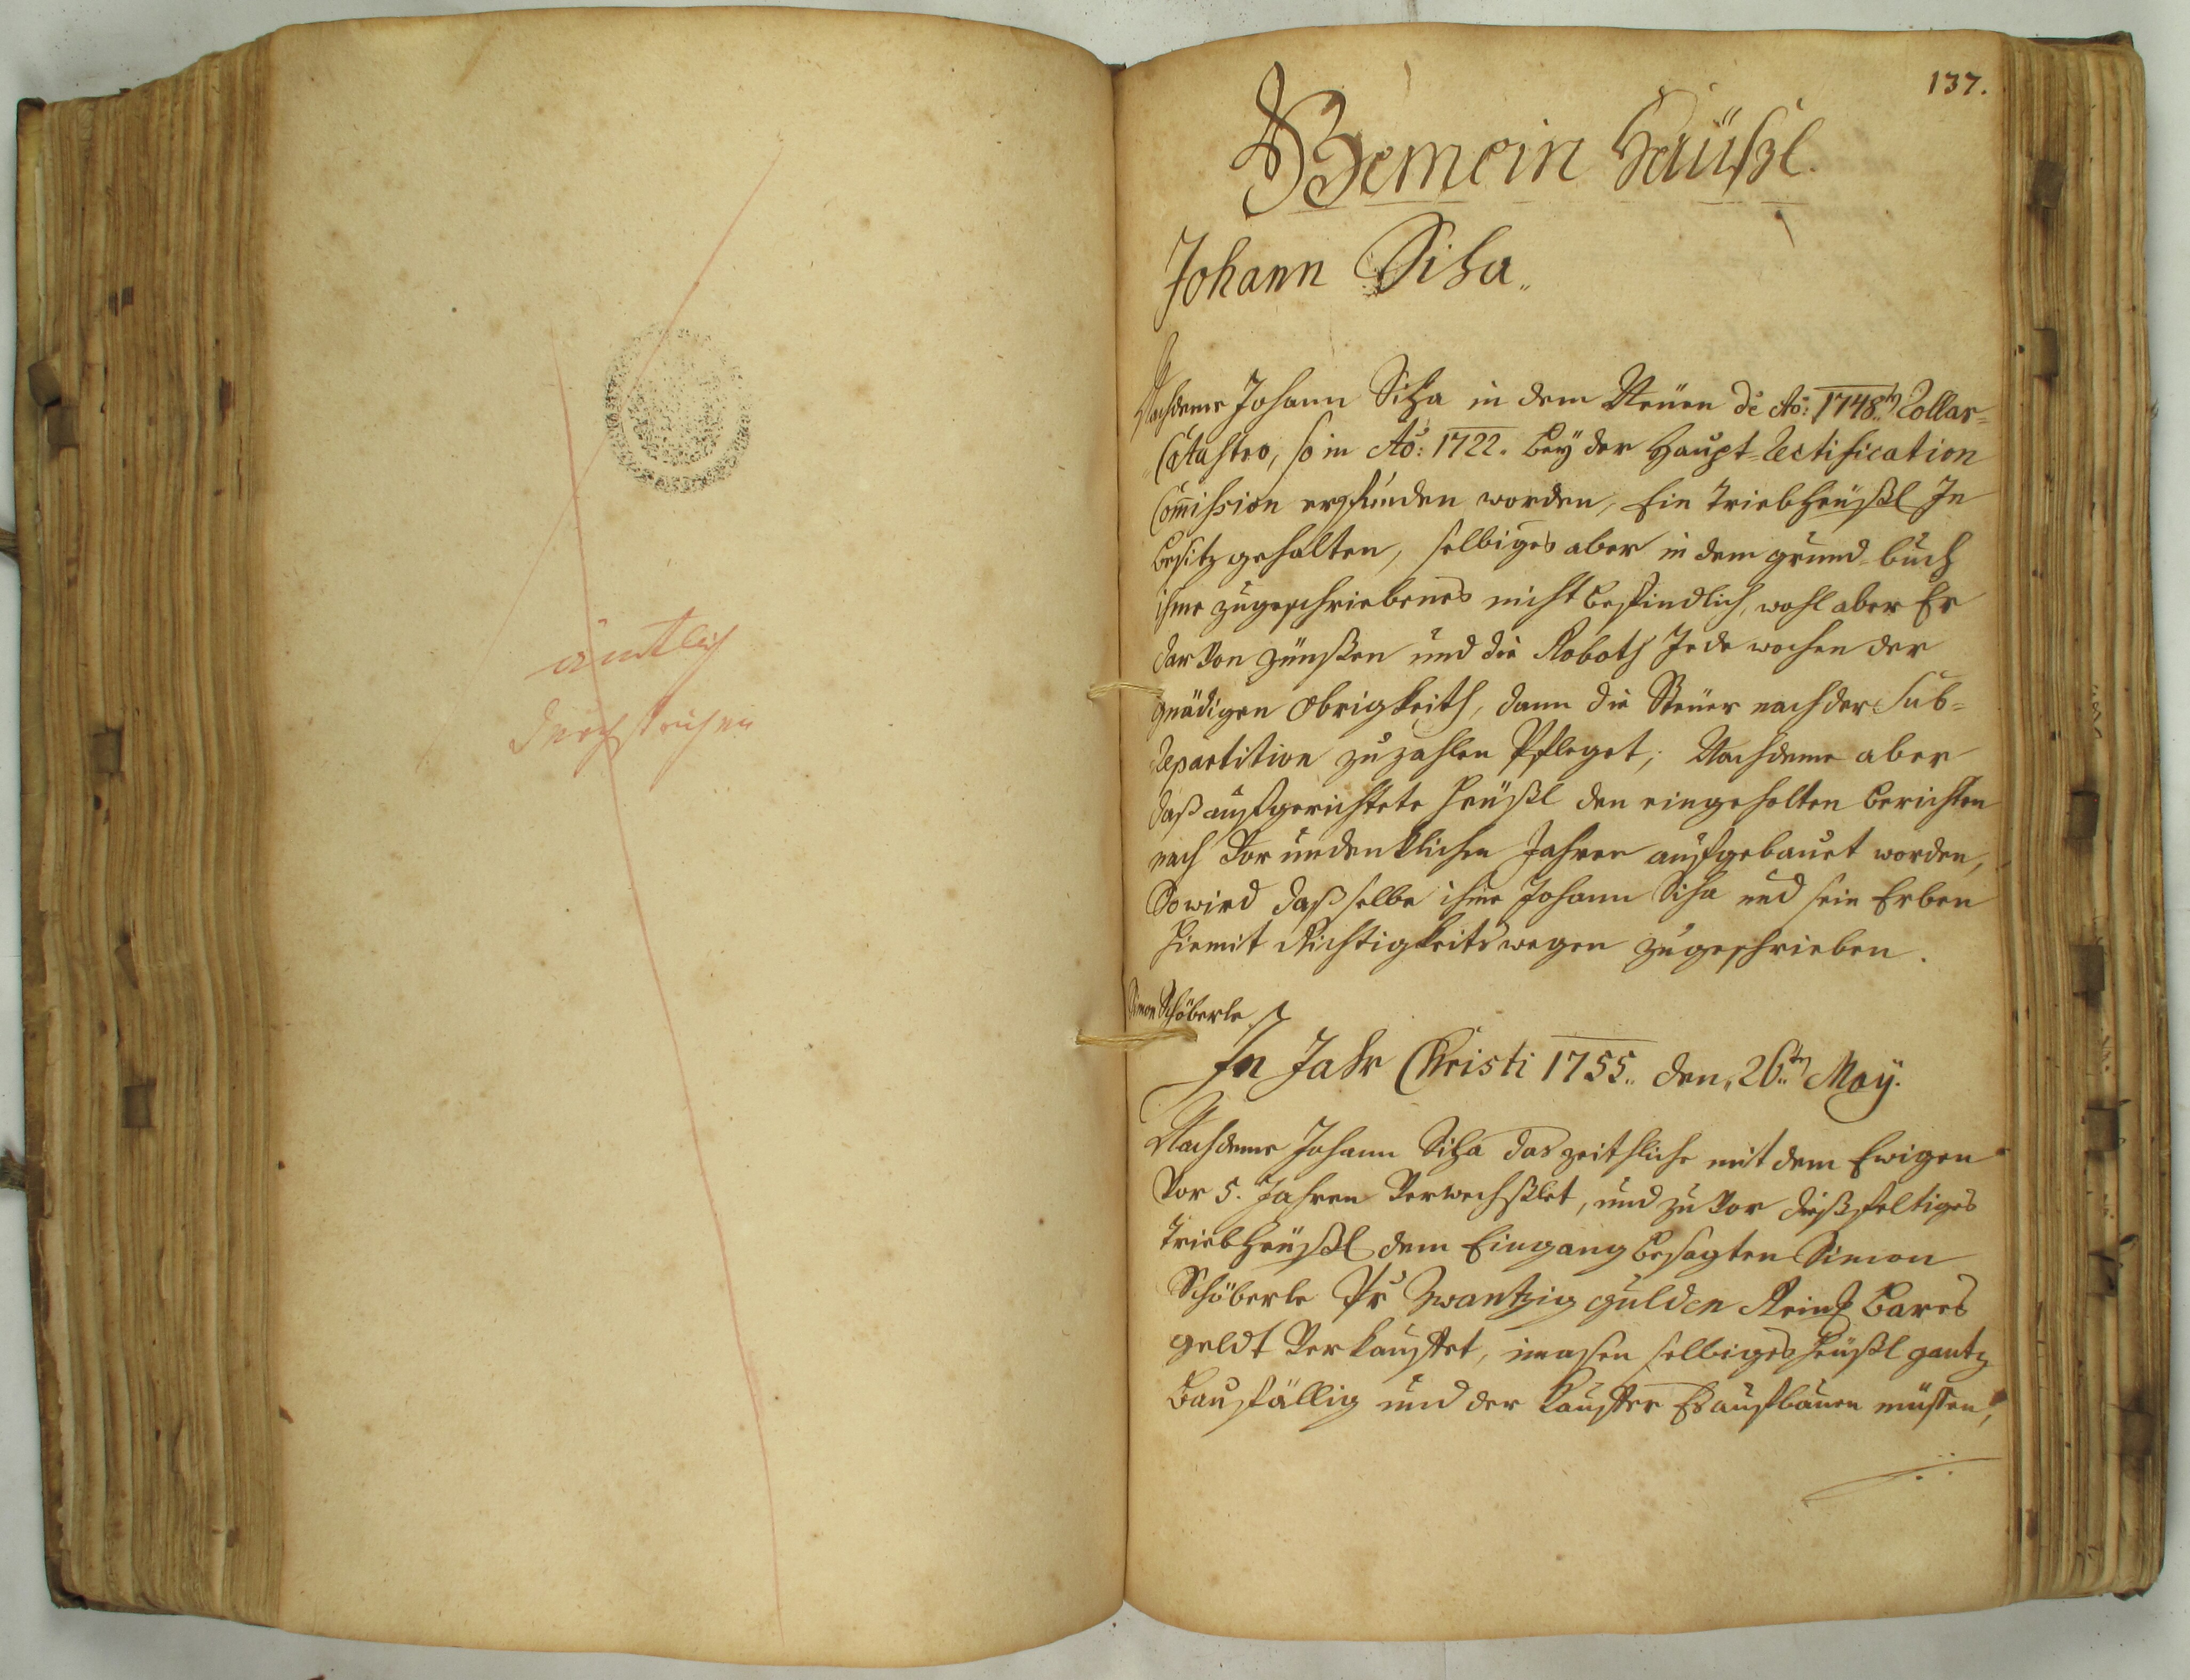 ämtlich
durchstrichen
137.
Gemein Häüßl.
Johann Siha
Nachdeme Johann Siha in dem Neüen de Ao: 1748.ten Collar-
Catastro, so in Ao: 1722. beÿ der Haupt-Rectification
Com̄ission erfunden worden, Ein Triebheüßl In
besitz gehalten, selbiges aber in dem grund-buch
ihme zugeschriebenes nicht befindlich, wohl aber Er
darvon zünßen und die Roboth Jede wochen der
gnädigen Obrigkeith, dann die Steüer nach der Sub-
Repartition zu zahlen Pfleget; Nachdeme aber
daß aufgerichtete heüßl den eingeholten berichten
nach vor undenklichen Jahren aufgebauet worden,
So wird daß selbe ihme Johann Siha und sein Erben
hiemit Richtigkeits wegen zugeschrieben.
Simon Schöberle
In Jahr Christi 1755. den 26.ten Maÿ.
Nachdeme Johann Siha das zeithliche mit dem Ewigen
vor 5. Jahren verwechßlet, und zu vor dießfeltiges
Triebheüßl dem Eingang besagten Simon
Schöberle Pr Zwantzig gulden Reinl. bares
geldt verkauffet, imassen selbiges heüßl gantz
baufällig und der Kauffer Es aufbauen müssen,